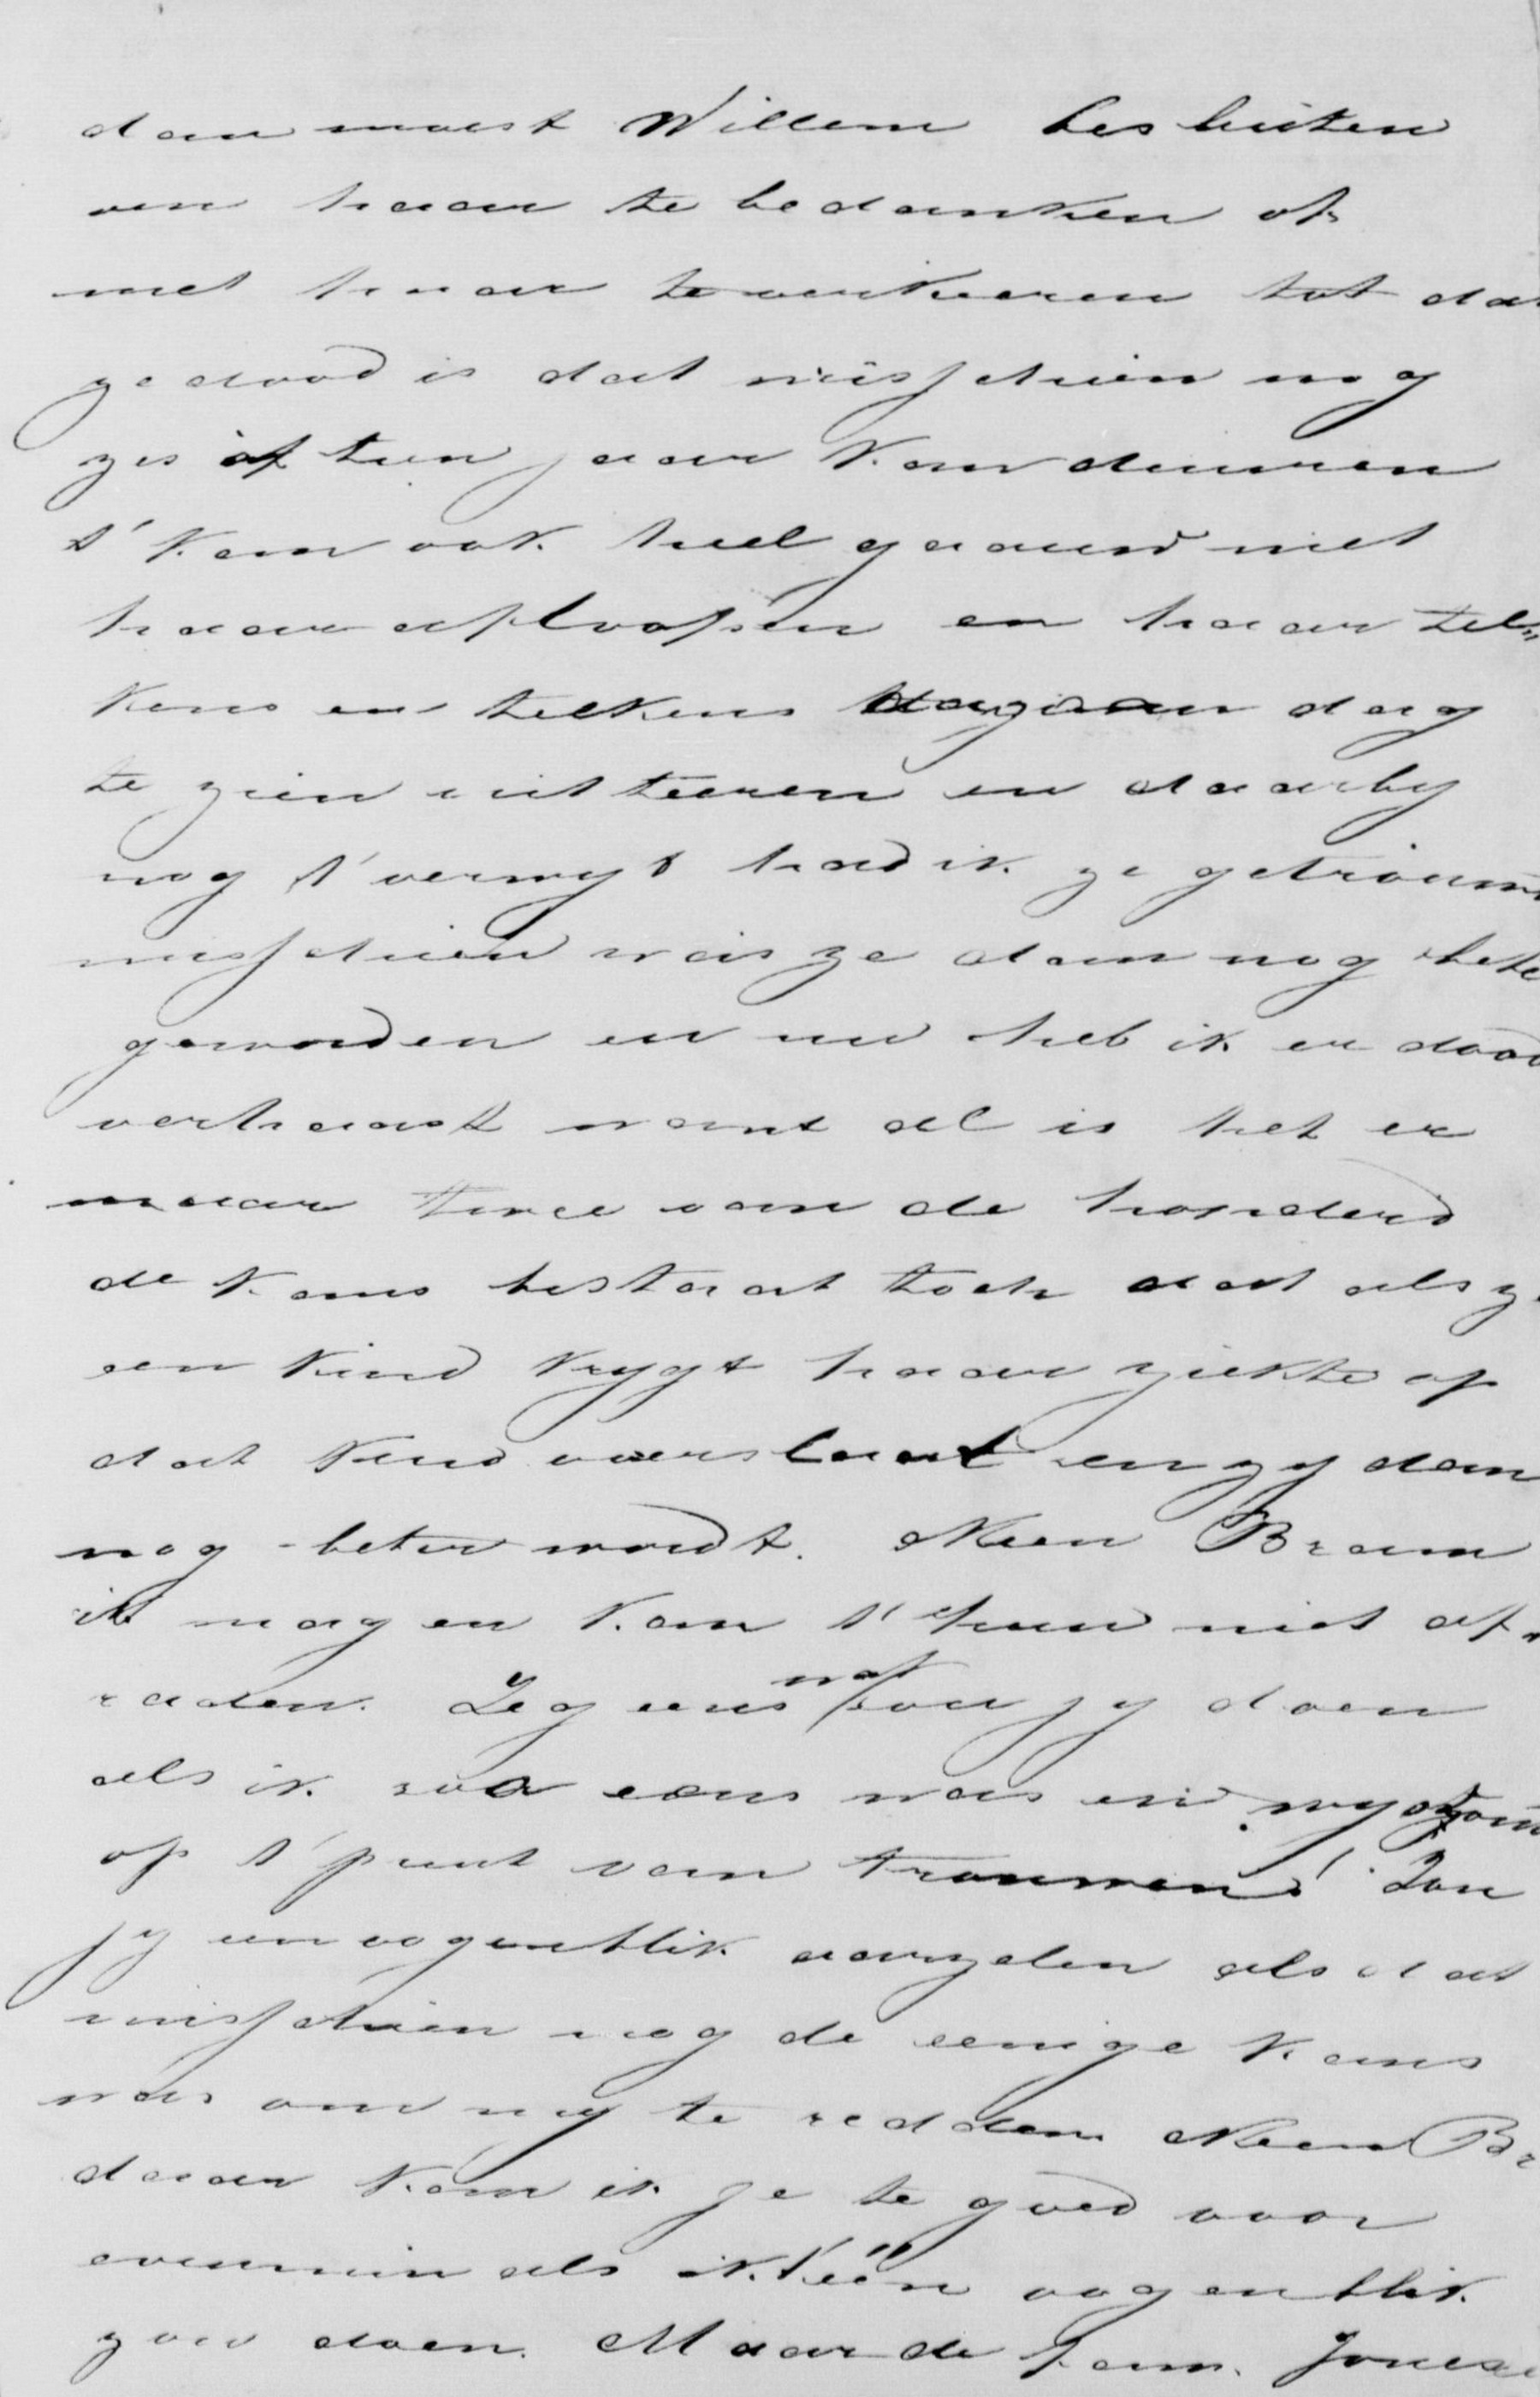 dan moest Willem besluiten
om haar te bedanken of
met haar te verkeeren tot dat
ze dood is dat misschien nog
zes of tien jaar kan duuren
t' kan ook heel gaauw met
haar afloopen en haar tel„
kens en telkens dag aan dag
te zien uitteeren en daarby
nog t' verwyt had ik ze getrouwd
misschien was ze dan nog bete
geworden en nu heb ik er dood
verhaast want al is het er
maar twee van de honderd
de kans bestaat toch dat als ze
een kind krygt haar ziekte op
dat kind overslaat en zy dan
nog beter wordt. Neen Bram
ik mag en kan t' hun niet af„
raden. Zeg eens wat zou jy doen
als ik zoo eens was en wy stonden
op t' punt van trouwen! Zou
jy een oogenblik aarzelen als dat
misschien nog de eenige kans
was om my te redden Neen Br
daar kan ik je te goed voor
evenmin als ik t' één oogenblik
zou doen. Maar de fam.